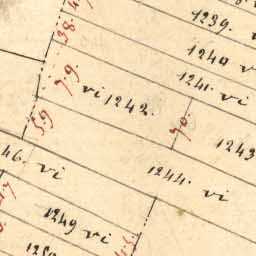 1239.
38.
1240 vi
7.9.
1241. vi
vi 1242.
59
70.
1243
46. vi
1244. vi
17
1249 vi